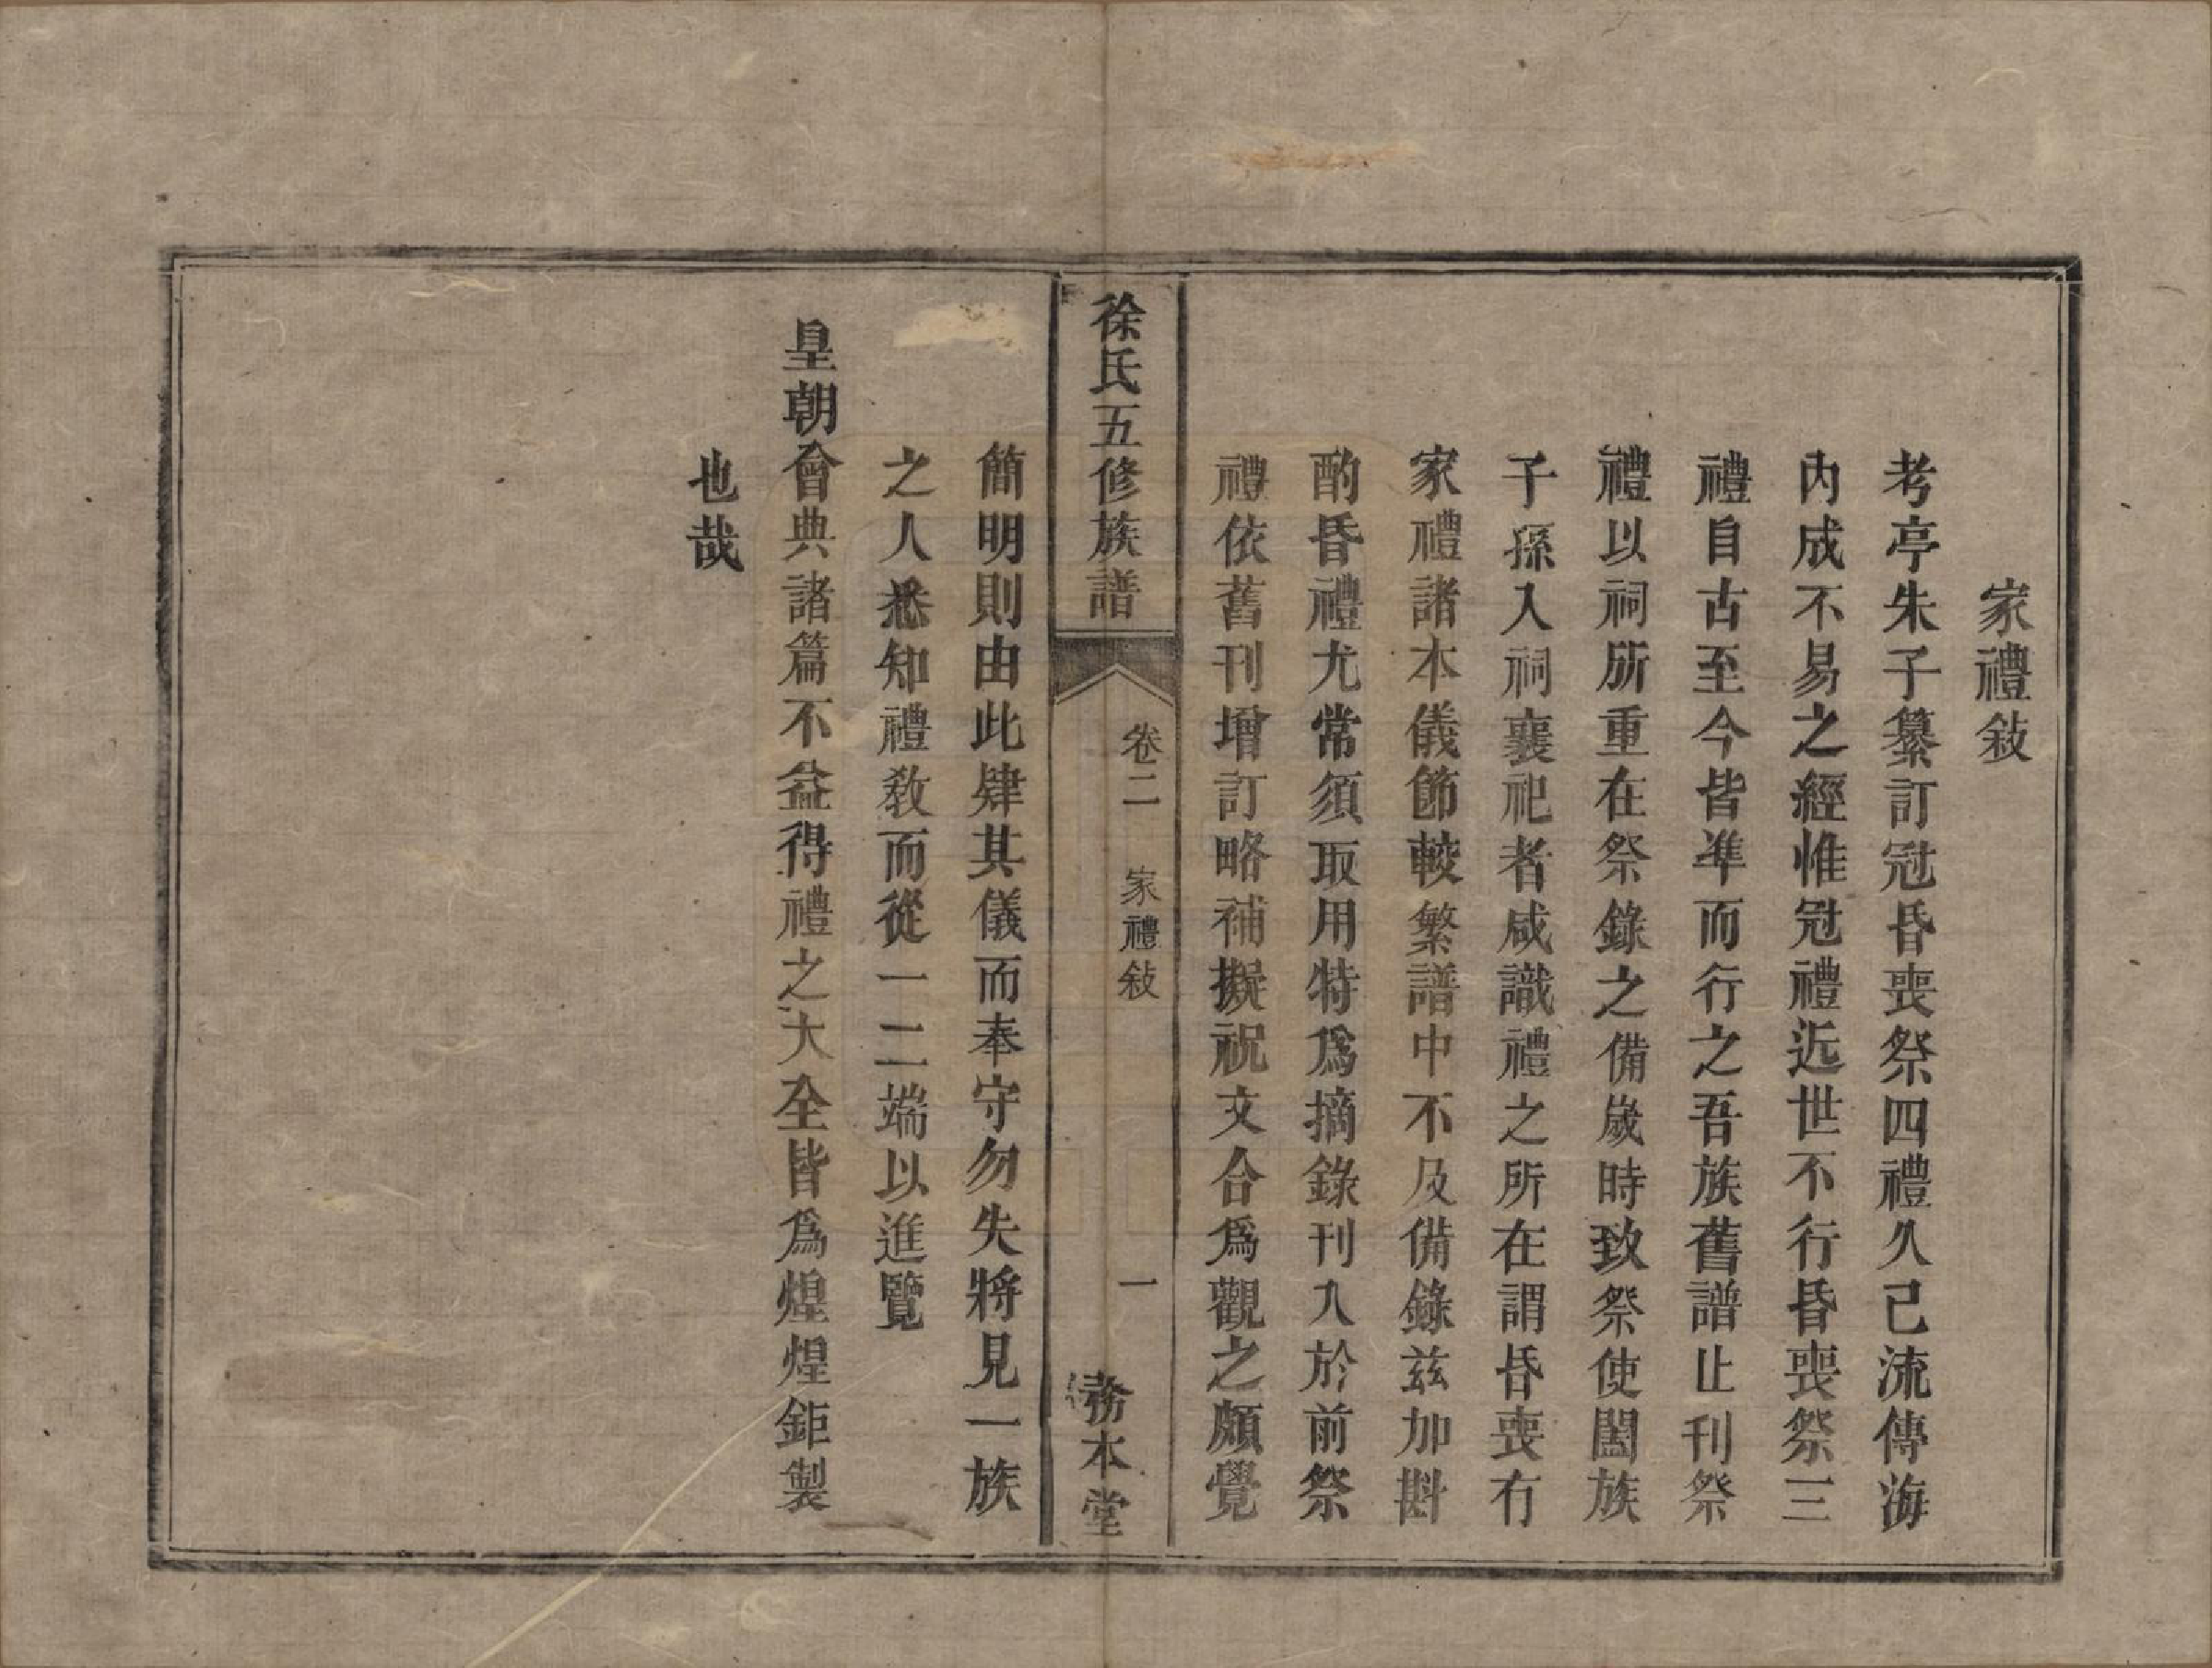 家禮敍
考亭朱子纂訂冠昏喪祭四禮久己流傳海
內成不易之經惟冠禮近世不行昏喪祭三
禮自古至今皆準而行之吾族舊譜止刊祭
禮以祠所重在祭錄之備歲時致祭使闔族
子孫入祠襄祀者咸識禮之所在謂昏喪有
家禮諸本儀節較繁譜中不及備錄茲加斟
酌昏禮尤常須取用特爲摘錄刊入於前祭
禮依舊刊增訂略補擬祝文合爲觀之頗覺
徐氏五修族譜
卷二　家禮敍
一
務本堂
簡明則由此肄其儀而奉守勿失將見一族
之人悉知禮敎而從一二端以進覽
皇朝會典諸篇不益得禮之大全皆爲煌煌鉅製
也哉